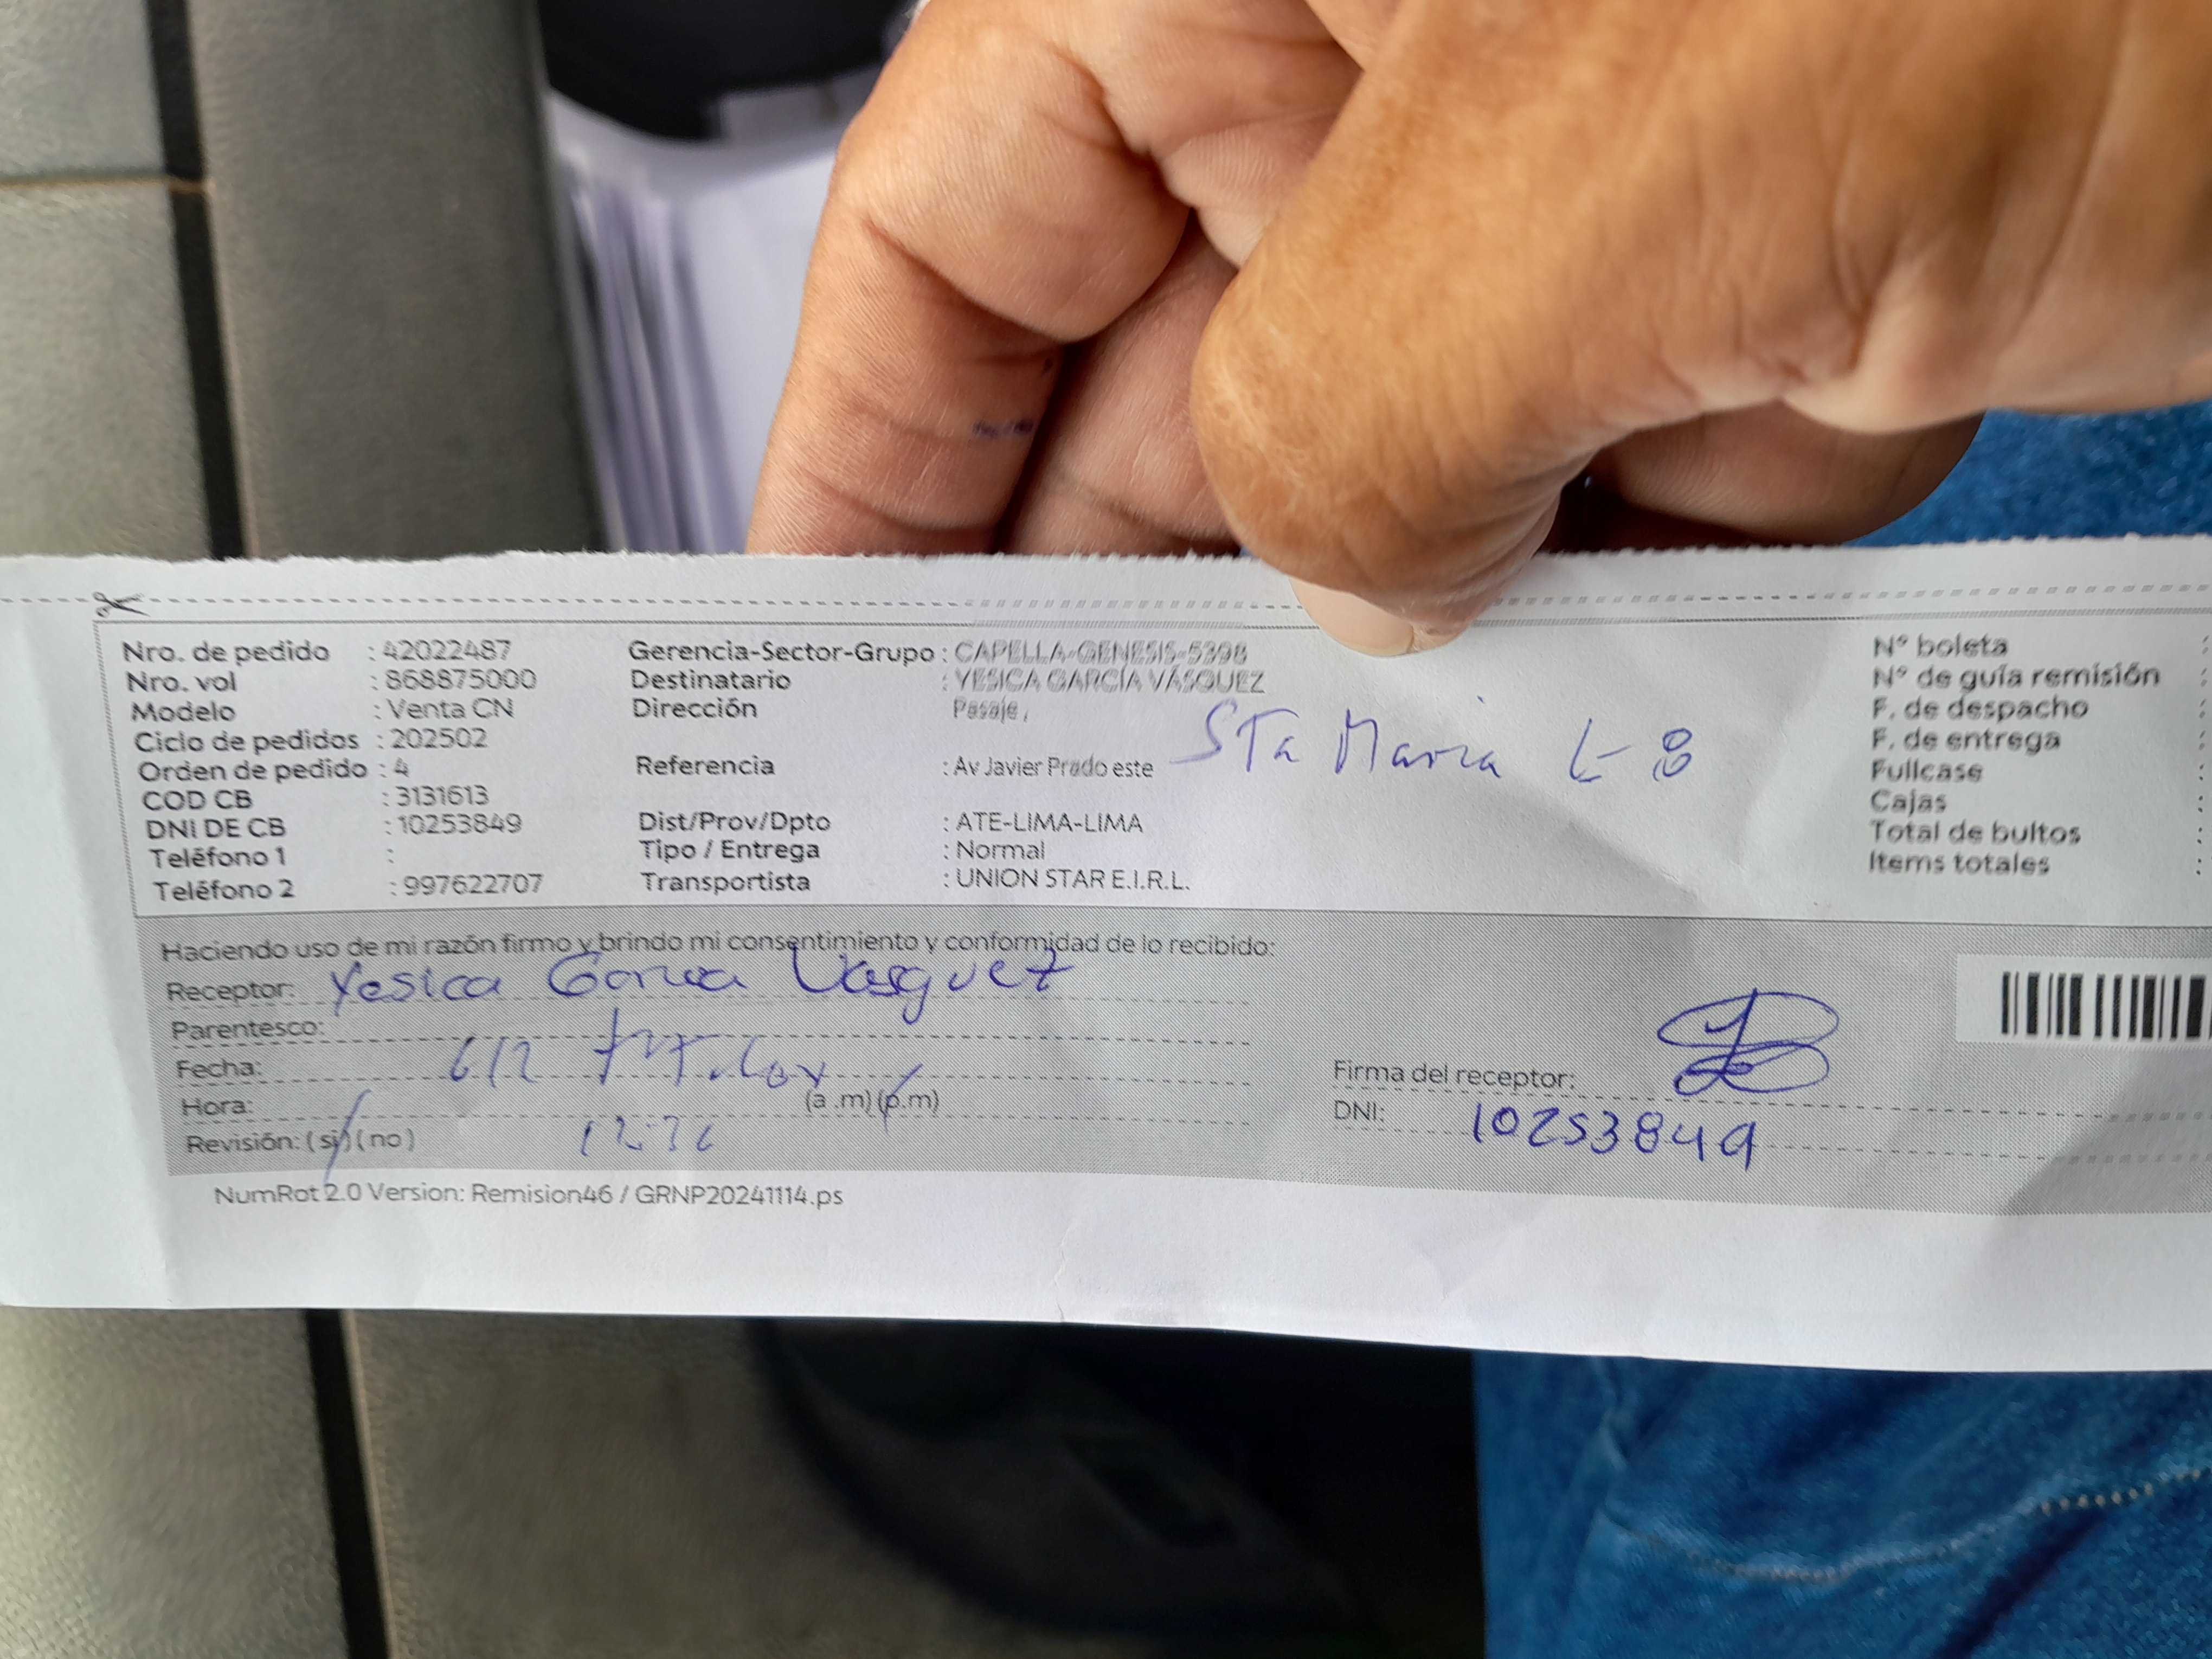 Nro. de pedido : 42022487 Gerencia-Sector-Grupo : CAPELLA-GENESIS-5398 N° boleta :
Nro. vol : 868875000 Destinatario : YESICA GARCÍA VÁSQUEZ N° de guía remisión :
Modelo : Venta CN Dirección Pasaje, F. de despacho :
Ciclo de pedidos : 202502 STa Maria L-8 F. de entrega :
Orden de pedido : 4 Referencia : Av Javier Prado este Fullcase :
COD CB : 3131613 Cajas :
DNI DE CB : 10253849 Dist/Prov/Dpto : ATE-LIMA-LIMA Total de bultos :
Teléfono 1 : Tipo / Entrega : Normal Items totales :
Teléfono 2 : 997622707 Transportista : UNION STAR E.I.R.L.
Haciendo uso de mi razón firmo y brindo mi consentimiento y conformidad de lo recibido:
Receptor: Yesica Garcia Vasquez
Parentesco:
Fecha:
Firma del receptor:
Hora: (a .m) (p.m)
DNI: 10253849
Revisión: ( si ) ( no )
NumRot 2.0 Version: Remision46 / GRNP20241114.ps